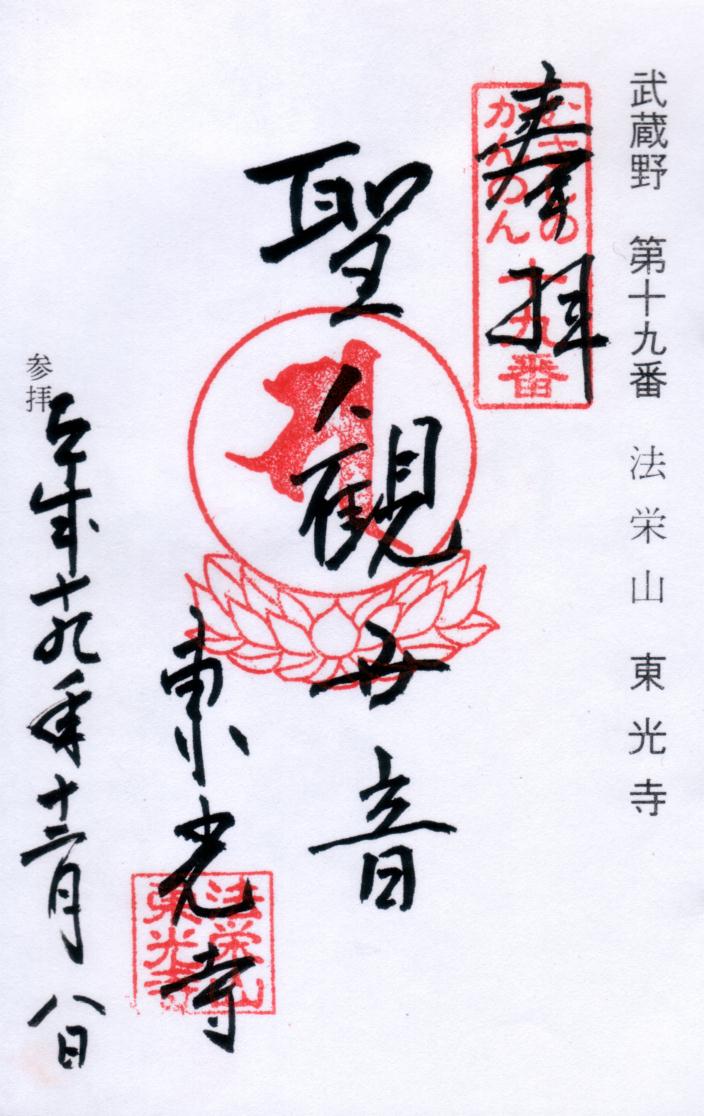 武蔵野 第十九番 法栄山 東光寺
奉拝
むさしの
かんのん
十九番
聖観世音
東光寺
法栄山
東光寺
参拝
平成十九年十二月八日